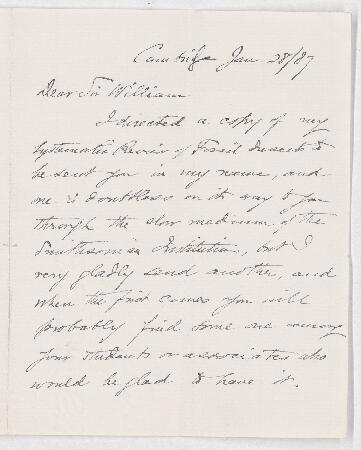 Cambridge Jan 28/87
Dear Sir William
I directed a copy of my
Systematic Review of Fossil Insects to
be sent you in my name, and
one is doubtless on its way to you
through the slow medium of the
Smithsonian Institution, but I
very gladly send another, and
when the first comes you will
probably find some one among
your students or associates who
would be glad to have it.